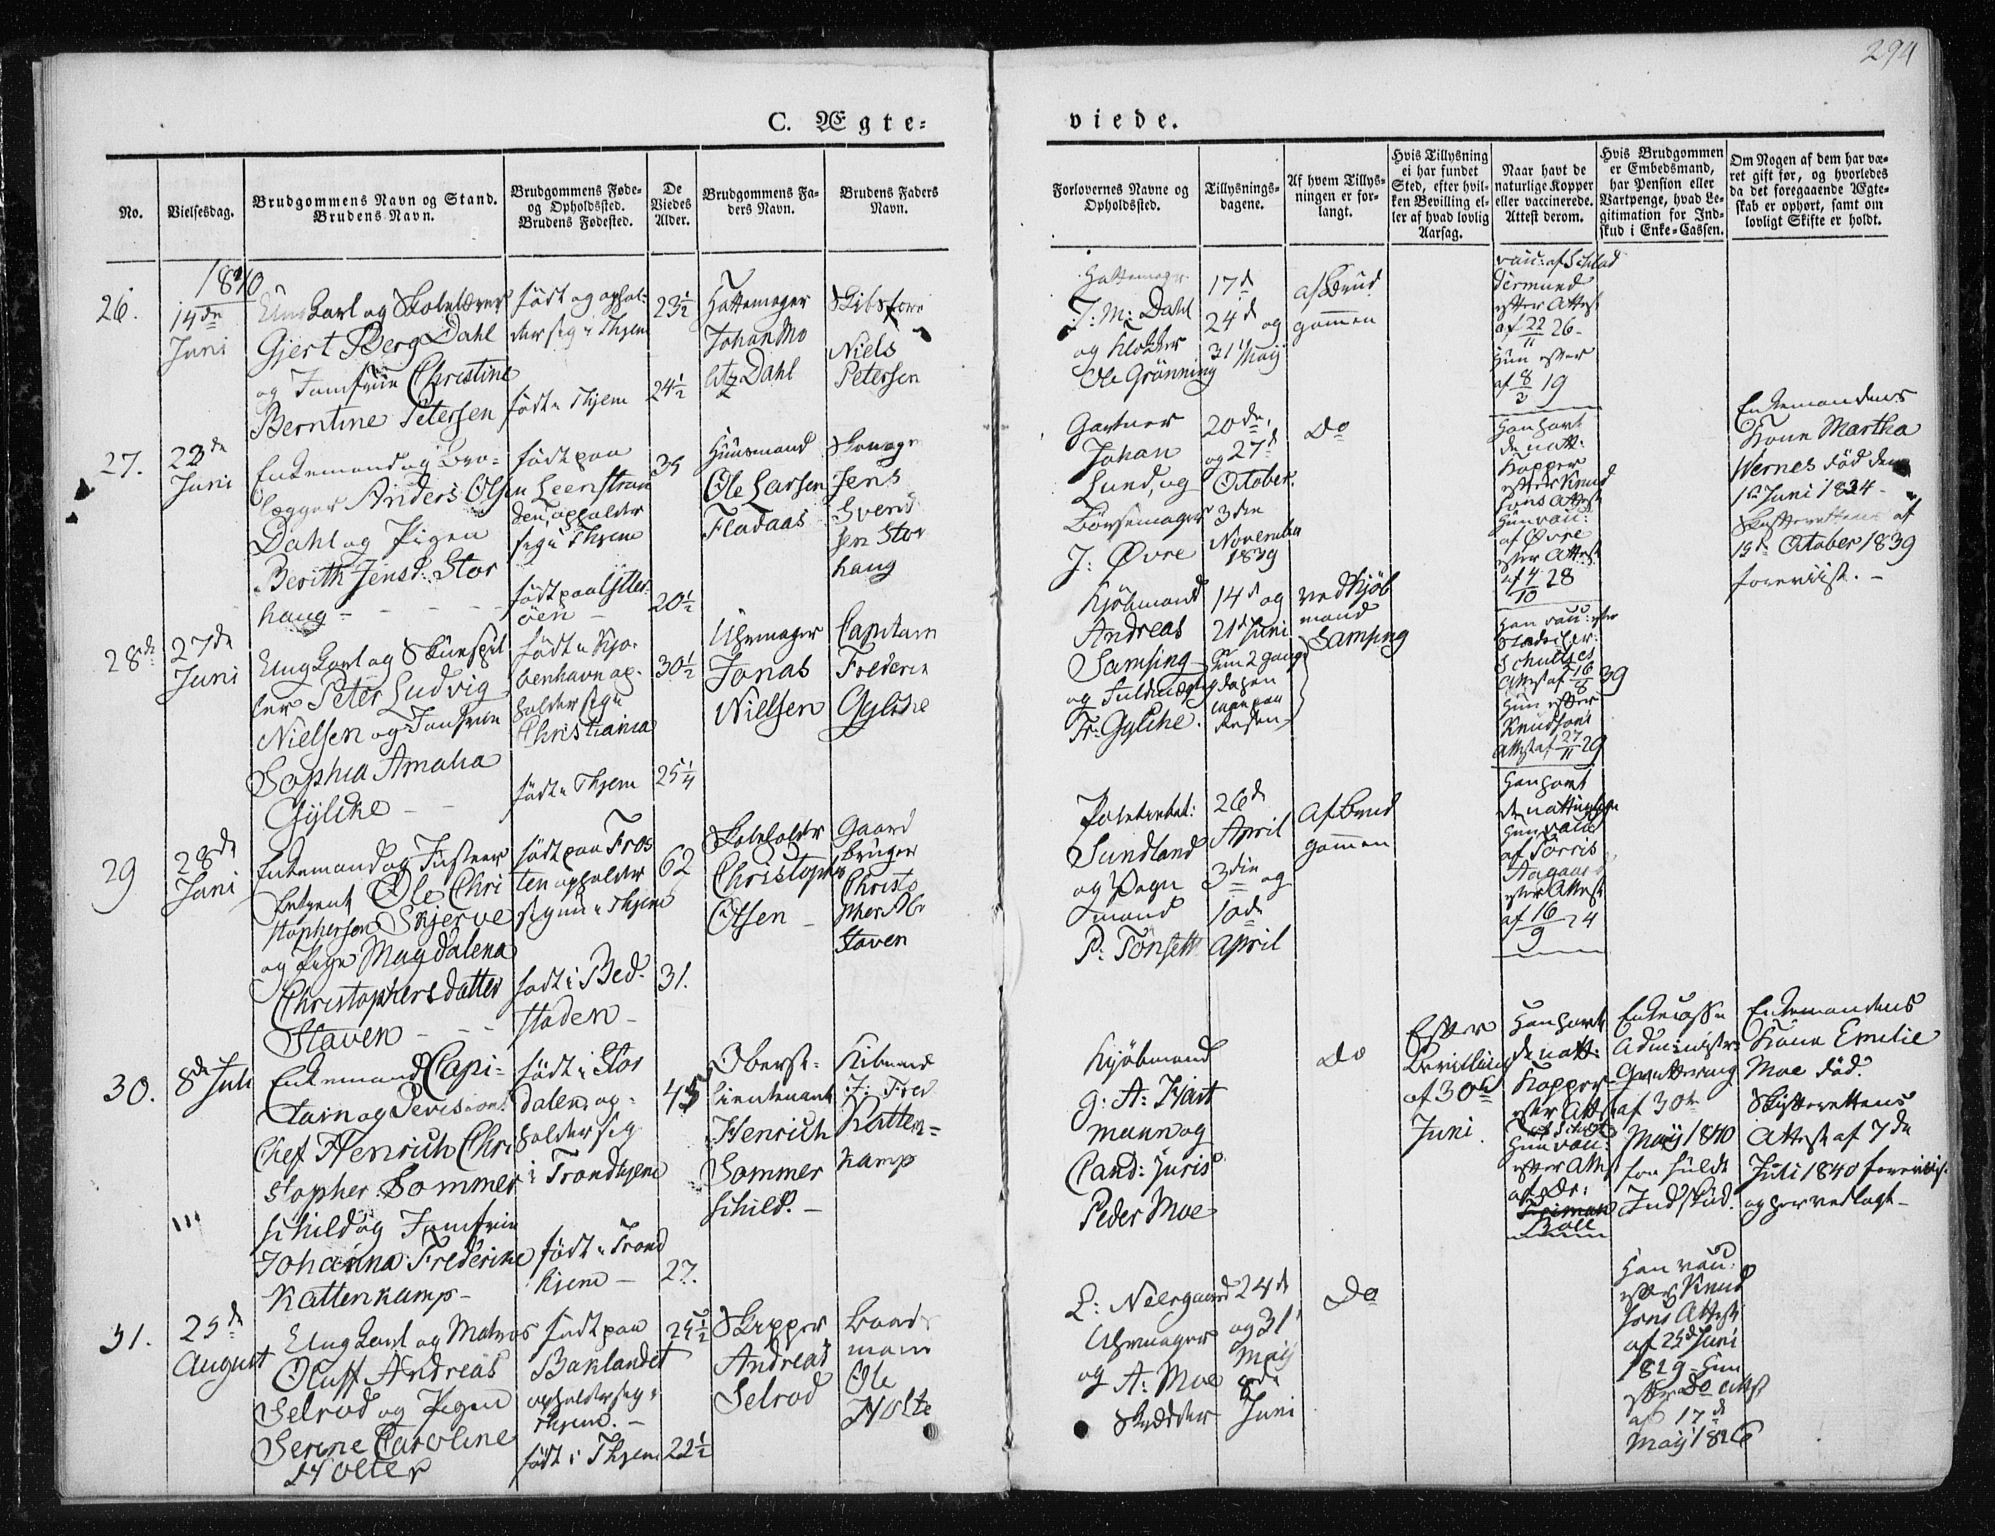 294
C. Ægte=
viede.
No.
Vielsesdag.
Brudgommens Navn og Stand.
Brudens Navn.
Brudgommens Føde-
og Opholdssted.
Brudens Fødested.
De
Viedes
Alder.
Brudgommens Fa-
ders Navn.
Brudens Faders
Navn.
Forlovernes Navne og
Opholdssted.
Tillysnings-
dagene.
Af hvem Tillys-
ningen er for-
langt.
Hvis Tillysning
ei har fundet
Sted, efter hvil-
ken Bevilling el-
ler af hvad lovlig
Aarsag.
Naar havt de
naturlige Kopper
eller vaccinerede.
Attest derom.
Hvis Brudgommen
er Embedsmand,
har Pension eller
Vartpenge, hvad Le-
gitimation for Ind-
skud i Enke=Cassen.
Om Nogen af dem har væ-
ret gift før, og hvorledes
da det foregaaende Ægte-
skab er ophørt, samt om
lovligt Skifte er holdt.
1840
26.
14de
Juni
Ung Karl og Skolelærer
Gjert Berg Dahl
og Jomfrue Christine
Berntine Petersen
født og ophol-
der sig i Thjem
født i Thjem
23½
24½
Hattemager
Johan Mo
litz Dahl
Niels
Petersen
Hattemager
J: M: Dahl
og Klokker
Ole Grønning
17de
24d og
31 Maij
af Brud
gommen
efter Attest
af 22/11 26
Hun efter
af 8/2 19
27.
Juni
Enkemand og Brø-
lægger Anders Olsen
Dahl og Pigen
Berith Jensd: Stor
haug
født paa
Leenstran
den, opholder
sig i Thjem
født paa Ytter-
øen
35
20½
Huusmand
Ole Larsen
Fladaas
Jens
Svend
sen Stor
haug
Gartner
Johan
Lund, og
Børsemager
J: Øvre
20de,
og 27d
October.
3die
November
1839
Do
Han havt
de natt:
Kopper
efter Knud
sons Attest
Hun vacc:
af Øvre
efter Attest
af 4/10 28
Enkemandens
Kone Martha
Wernes død den
1ste Juni 1834
Skifterettens af
October 1839
foreviist.
28de
27de
Juni
Ung Karl og Skuespil
ler Peter Ludvig
Nielsen og Jomfrue
Sophia Amalia
Gylche
født i Kjø-
benhavn op-
holder sig i
Christiania
født i Thjem
30½
25¼
Uhrmager
Jonas
Nielsen
Capitain
Frederik
Gylche
Kjøbmand
Andreas
Samsing
og Fuldmægtig
Fr: Gylche.
14d og
21d Juni
ved Kjøb
mand
Samsing
Han vacc: efter
Schultzes
Attest af 16/8 39
Hun efter
Knudsons
Attest af 27/11 29
29
28de
Juni
Enkemand og
Ole Chri
stophersen Skjerve
og Pige Magdalena
Christophersdatter
Staven
født paa Fros
ten opholder
sig nu i Thjem
født i Bed-
staden
62
31.
Skoleholder
Christopher
Olsen
Gaard
bruger
Christo
pher
Staven
Sundland
og Vogn
mand
P: Tønseth
26de
April
3die og
10de
April
Af Brud
gommen
Han havt
de naturlige
Hun vacc:
af Torris
Aagaard
efter Attest
af 16/9 24
30.
8de Juli
Enkemand Capi-
tain og Devisions
Chef Henrich Chri
stopher Sommer
schild og Jomfrue
Johanna Frederike
Kattenkamp
født i Stor
dalen, op-
holder sig
i Trondhjem
født i Trond
hjem
45
27.
Oberst-
lieutenant
Henrich
Sommer
schild.
Kjbmand
J: Fred
Katten=
kamp
Kjøbmand
G: A: Hart
mann og
Cand: juris
Peder Moe
Do
Efter
Bevilling
af 30te
Juni.
Han havt
de natt:
Kopper
efter Attest
Hun vacc:
efter Attest
af Dr:
Boll
Enkecasse
Administr:
Qvittering
af 30te
Maij 1840
for fuldt
Indskud.
Enkemandens
Kone Emilie
Moe død.
Skifterettens
Attest af 7de
Juli 1840 foreviist
og her vedlagt
31.
25d
August
Ung Karl og Matros
Oluff Andreas
Selrod og Pigen
Serine Caroline
Holter
født paa
Baklandet
opholder sig i
Thjem.
født i Thjem
25½
22½
Skipper
Andreas
Selrod
Ole
Holte
L: Neergaard
Uhrmager
og A: Moe
Skrædder
24de
og 31
Maij
8de
Juni
Do
Han vacc:
efter Knud
sons Attest
af 25d Juni
1829 Hun
efter Do Attest
af 17d
Maij 1826